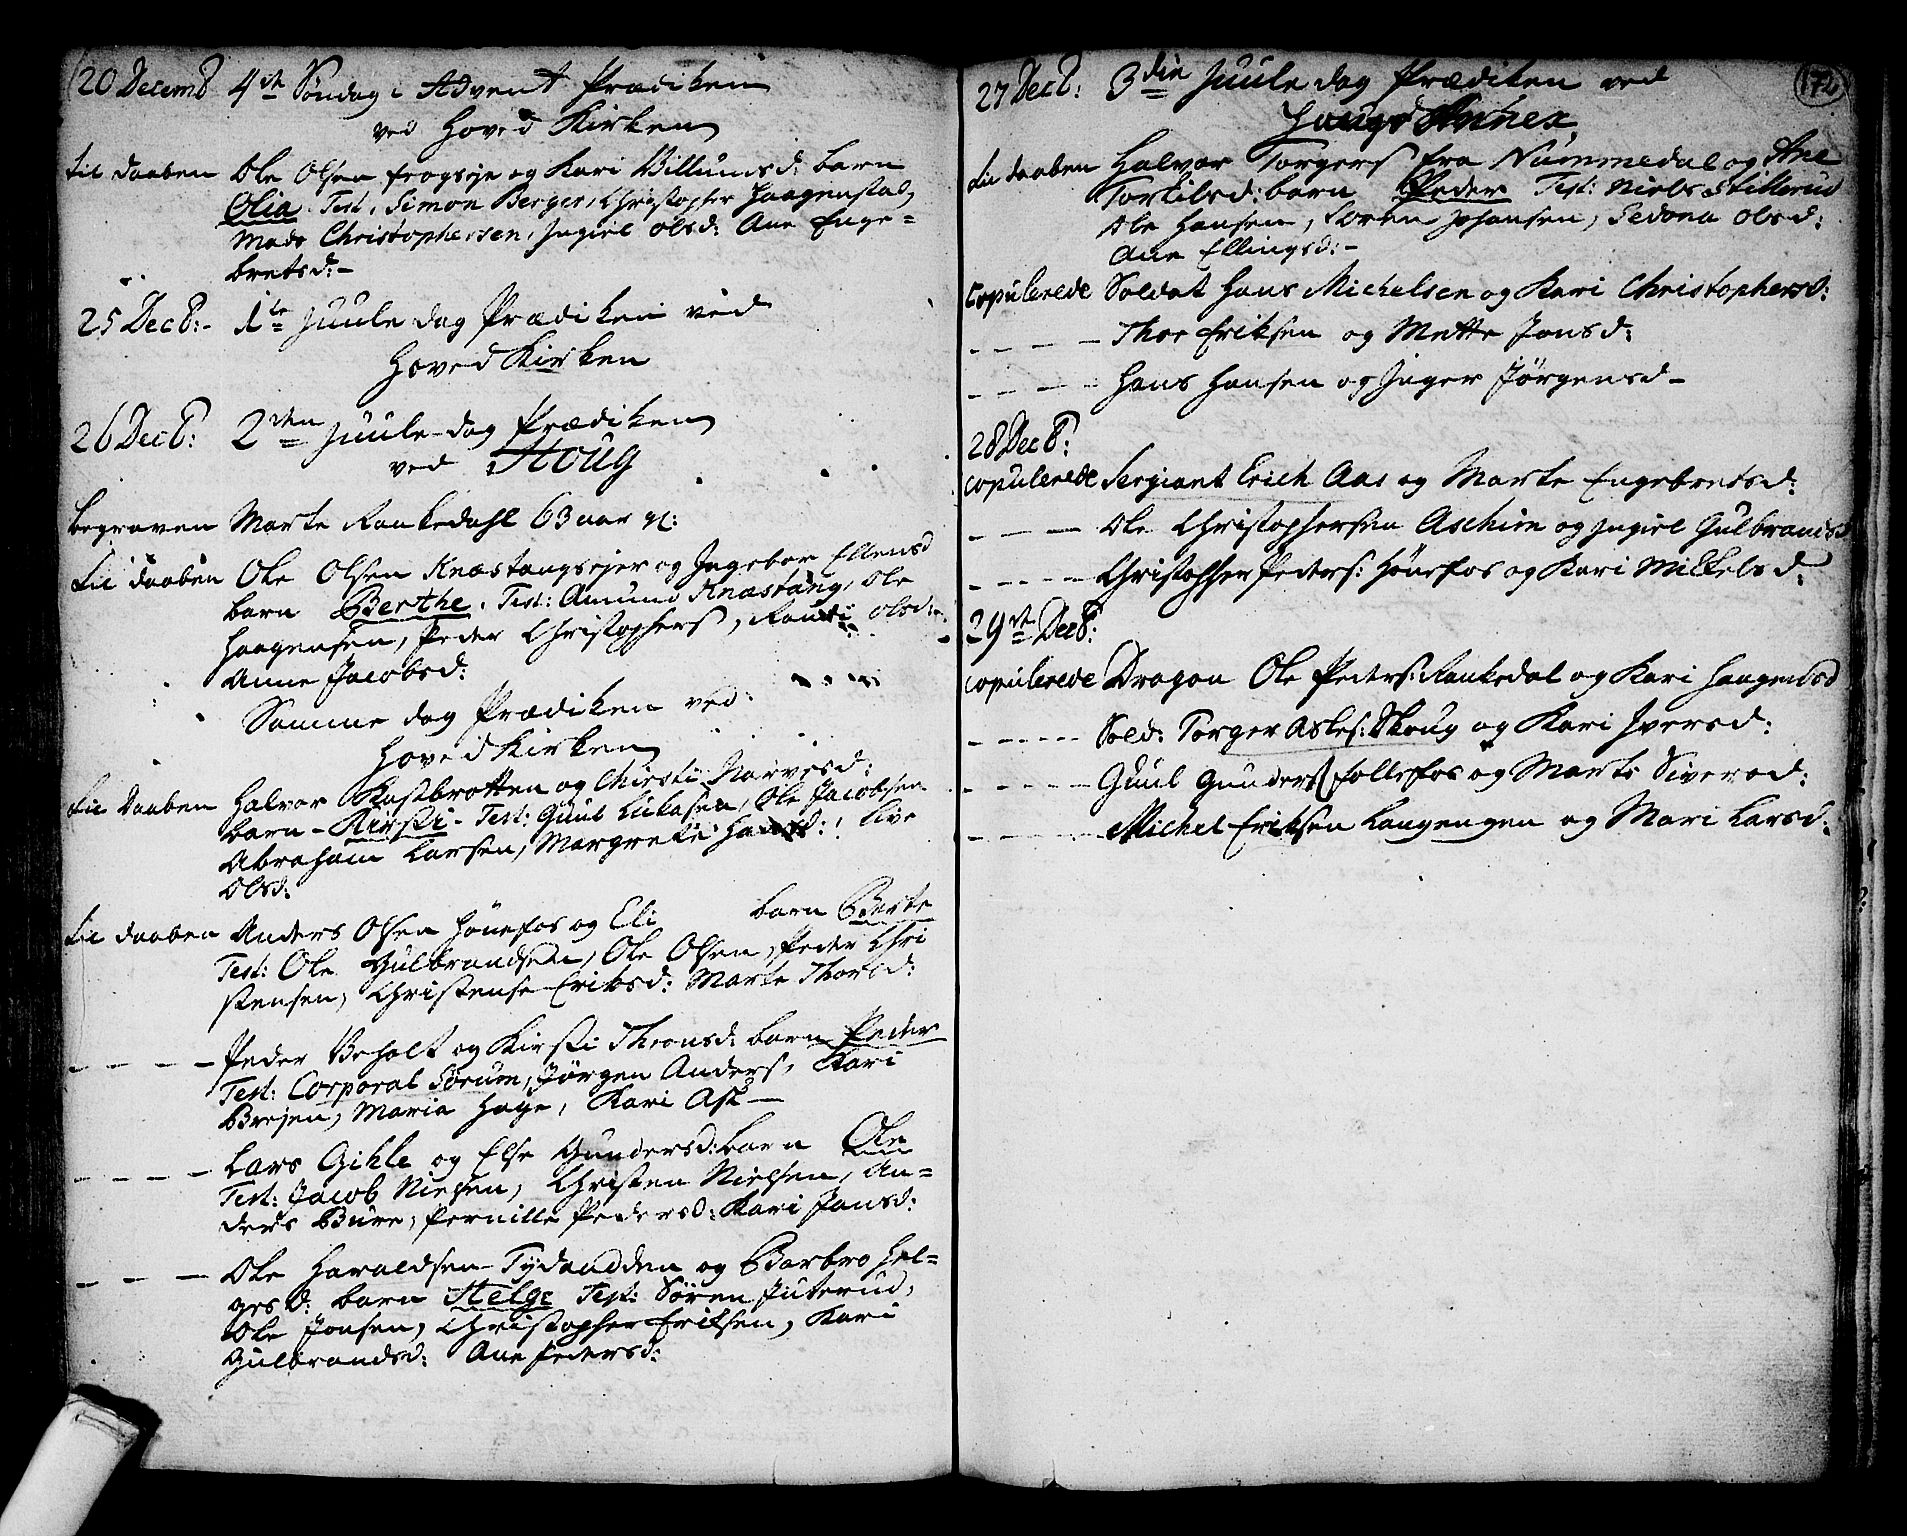 20 Decemb 4de Søndag i Advent Prædiken
ved Hoved Kirken
til daaben Ole Olsen frogseje og Kari Billumsd: barn
Olia. Test. Simon Berger, Christopher Haagenstal,
Mads Christophersen, Ingiel olsd: Ane Enge=
bretsd:-
25 Decb:- 1te Juule dag Prædiken ved
Hoved Kirken
26 Decb: 2den Juule-dag Prædiken
ved Houg
begraven Marte Rankedahl 63 aar gl:
til daaben Ole Olsen Knæstangsejer og Ingebor Ellensd
barn Berthe. Test: Amund Knæstang, Ole
Haagensen, Peder Christophers, Randi olsd:
Anne Jacobsd:
Samme dag Prædiken ved:
Hoved Kirken
til Daaben Halvor Kastbrotten og Chirsti Narvesd:
barn - Kirsti - Test: Guul Lukasen, Ole Jacobsen
Abraham Larsen, Margrete Hansd: Live
Olsd:
til daaben Anders Olsen Hønefos og Eli barn Berte
Test: Ole Gulbrandsen, Ole Olsen, Peder Chri
stensen, Christense Eriksd: Marte Thorsd:
- - - - Peder Beholt og Kirsti Thronsd: barn Peder
Test: Corporal Sørum, Jørgen Anders, Kari
Brejen, Maria Hage, Kari Ask -
- - - - Lars Gihle og Else Gundersd: barn Ole
Test: Jacob Nielsen, Christen Nielsen, An=
ders Bure, Pernille Pedersd: Kari Jonsd:
- - - Ole Haraldsen Tydandden og Barbro Hel=
gesd: barn Helge Test: Søren Juterud,
Ole Jonsen, Christopher Eriksen, Kari
Gulbrandsd: Ane Pedersd:
172
27 Decb: 3die Juule dag Prædiken ved
Hougs Annex
til daaben Halvor Torgers fra Nummedal og Ane
Torkilsd: barn Peder Test: Niels Stillerud
Ole Hansen, Soren Johansen, Sedona olsd:
Ane Ellingsd:-
Copulerede Soldat Hans Michelsen og Kari Christophersd:
- - - - Thor Eriksen og Mette Jonsd:
- - - - Hans Hansen og Inger Jørgensd-
28 Decb:
copulerede Sergiant Erich Aas og Marte Engebretsd:
- - - Ole Christophersen Aschim og Ingiel Gulbrandsd
- - - - - Christopher Peders: Hønefos og Kari Mikkelsd:
29de Decb:
copulerede Dragon Ole Peders: Rankedal og Kari Haagensd
- - - - - Sold: Torger Asles: Skoug og Kari Iversd:
- - - - - Guul Gunders Follefos og Marte Siversd:
- - - - - Michel Eriksen Langengen og Mari Larsd: